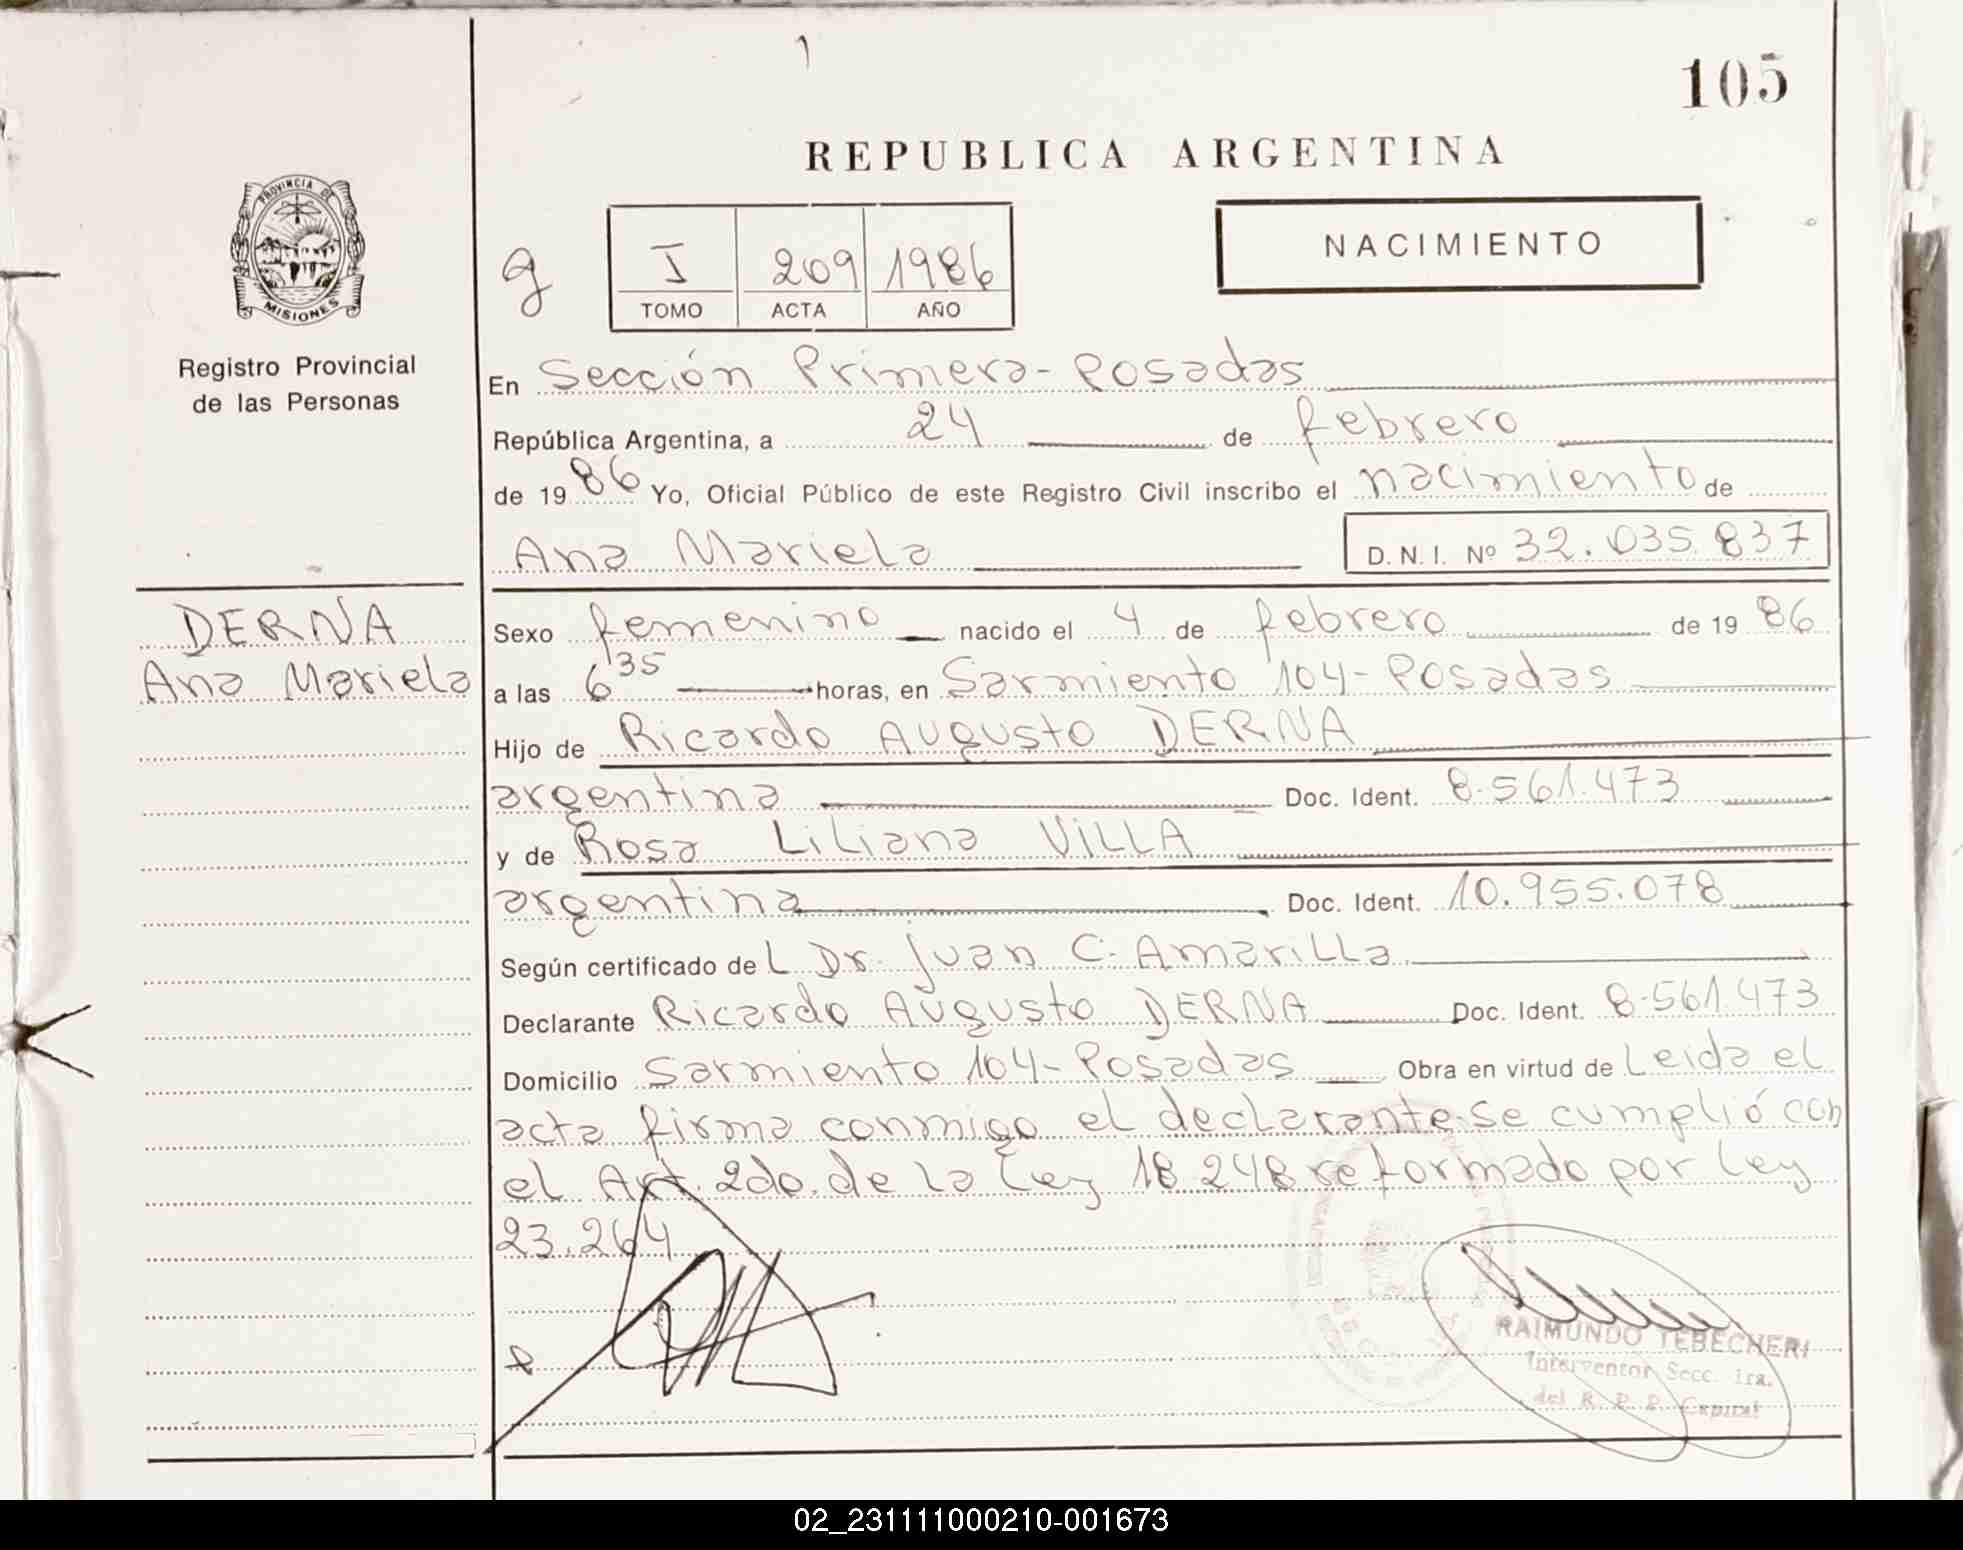 105
REPUBLICA ARGENTINA
PROVINCIA DE
MISIONES
Registro Provincial
de las Personas
g
I 209 1986
TOMO ACTA AÑO
NACIMIENTO
En Sección Primera - Posadas
República Argentina, a 24 de febrero
de 1986 Yo, Oficial Público de este Registro Civil inscribo el nacimiento de
Ana Mariela D. N. I. Nº 32.035.837
DERNA
Ana Mariela
Sexo femenino nacido el 4 de febrero de 1986
a las 6 35 horas, en Sarmiento 104 - Posadas
Hijo de Ricardo Augusto DERNA
argentina Doc. Ident. 8.561.473
y de Rosa Liliana VILLA
argentina Doc. Ident. 10.955.078
Según certificado del Dr. Juan C. Amarilla
Declarante Ricardo Augusto DERNA Doc. Ident. 8.561.473
Domicilio Sarmiento 104 - Posadas Obra en virtud de Leida el
acta firma conmigo el declarante. se cumplió con
el Art. 2do. de la Ley 18.248 reformado por Ley
23.264
RAIMUNDO TEBECHERI
Interventor Secc. 1ra.
del R. P. P. Capital
02_231111000210-001673